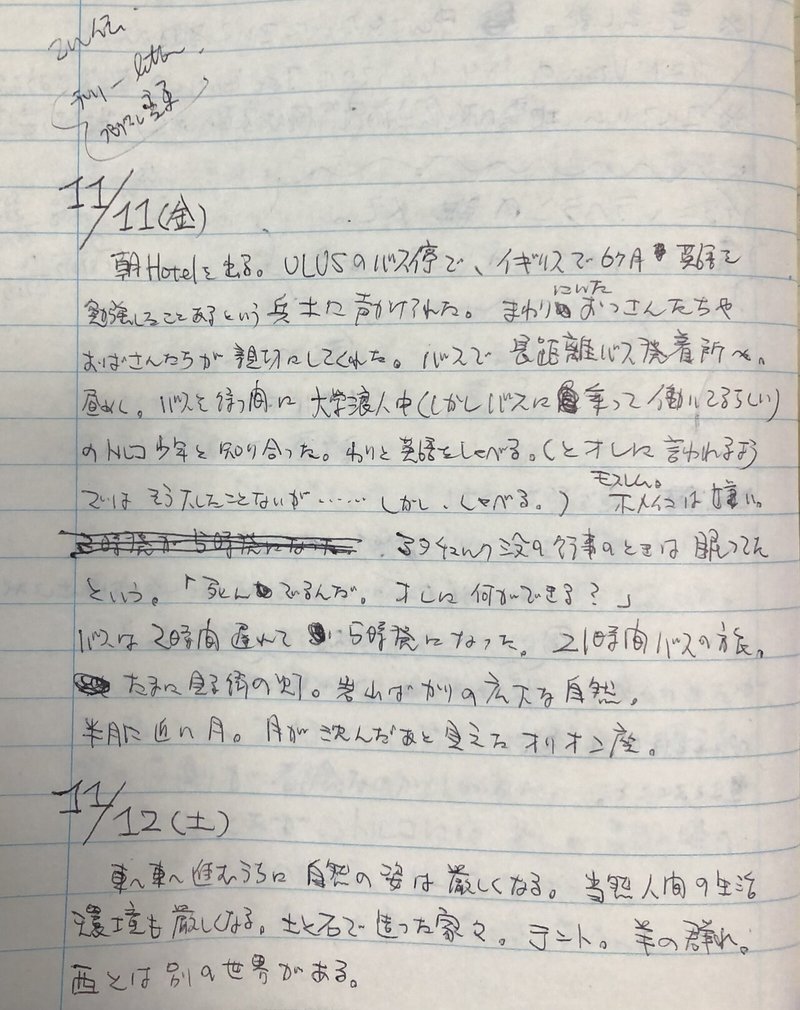 11/11(金)
朝Hotelを出る。ULUSのバス停で、イギリスで6ヶ月英語を
勉強したことあるという兵士に声かけられた。まわりにいたおっさんたちや
おばさんたちが親切にしてくれた。バスで長距離バス発着所へ。
昼めし。バスを待つ間に大学浪人中(しかしバスに乗って働いてるらしい)
のトルコ少年と知り合った。わりと英語をしゃべる。(とオレに言われるよう
ではそう大したことないが……しかし、しゃべる。)モスレム。ホメイニは嫌い。
3時発が5時発になった。アタチュルク没の行事のときは眠ってた
という。「死んでるんだ。オレに何ができる?」
バスは2時間遅れて5時発になった。21時間バスの旅。
たまに見る街の灯。岩山ばかりの広大な自然。
半月に近い月。月が沈んだあと見えたオリオン座。
11/12(土)
東へ東へ進むうちに自然の姿は厳しくなる。当然人間の生活
環境も厳しくなる。土と石で造った家々。テント。羊の群れ。
西とは別の世界がある。